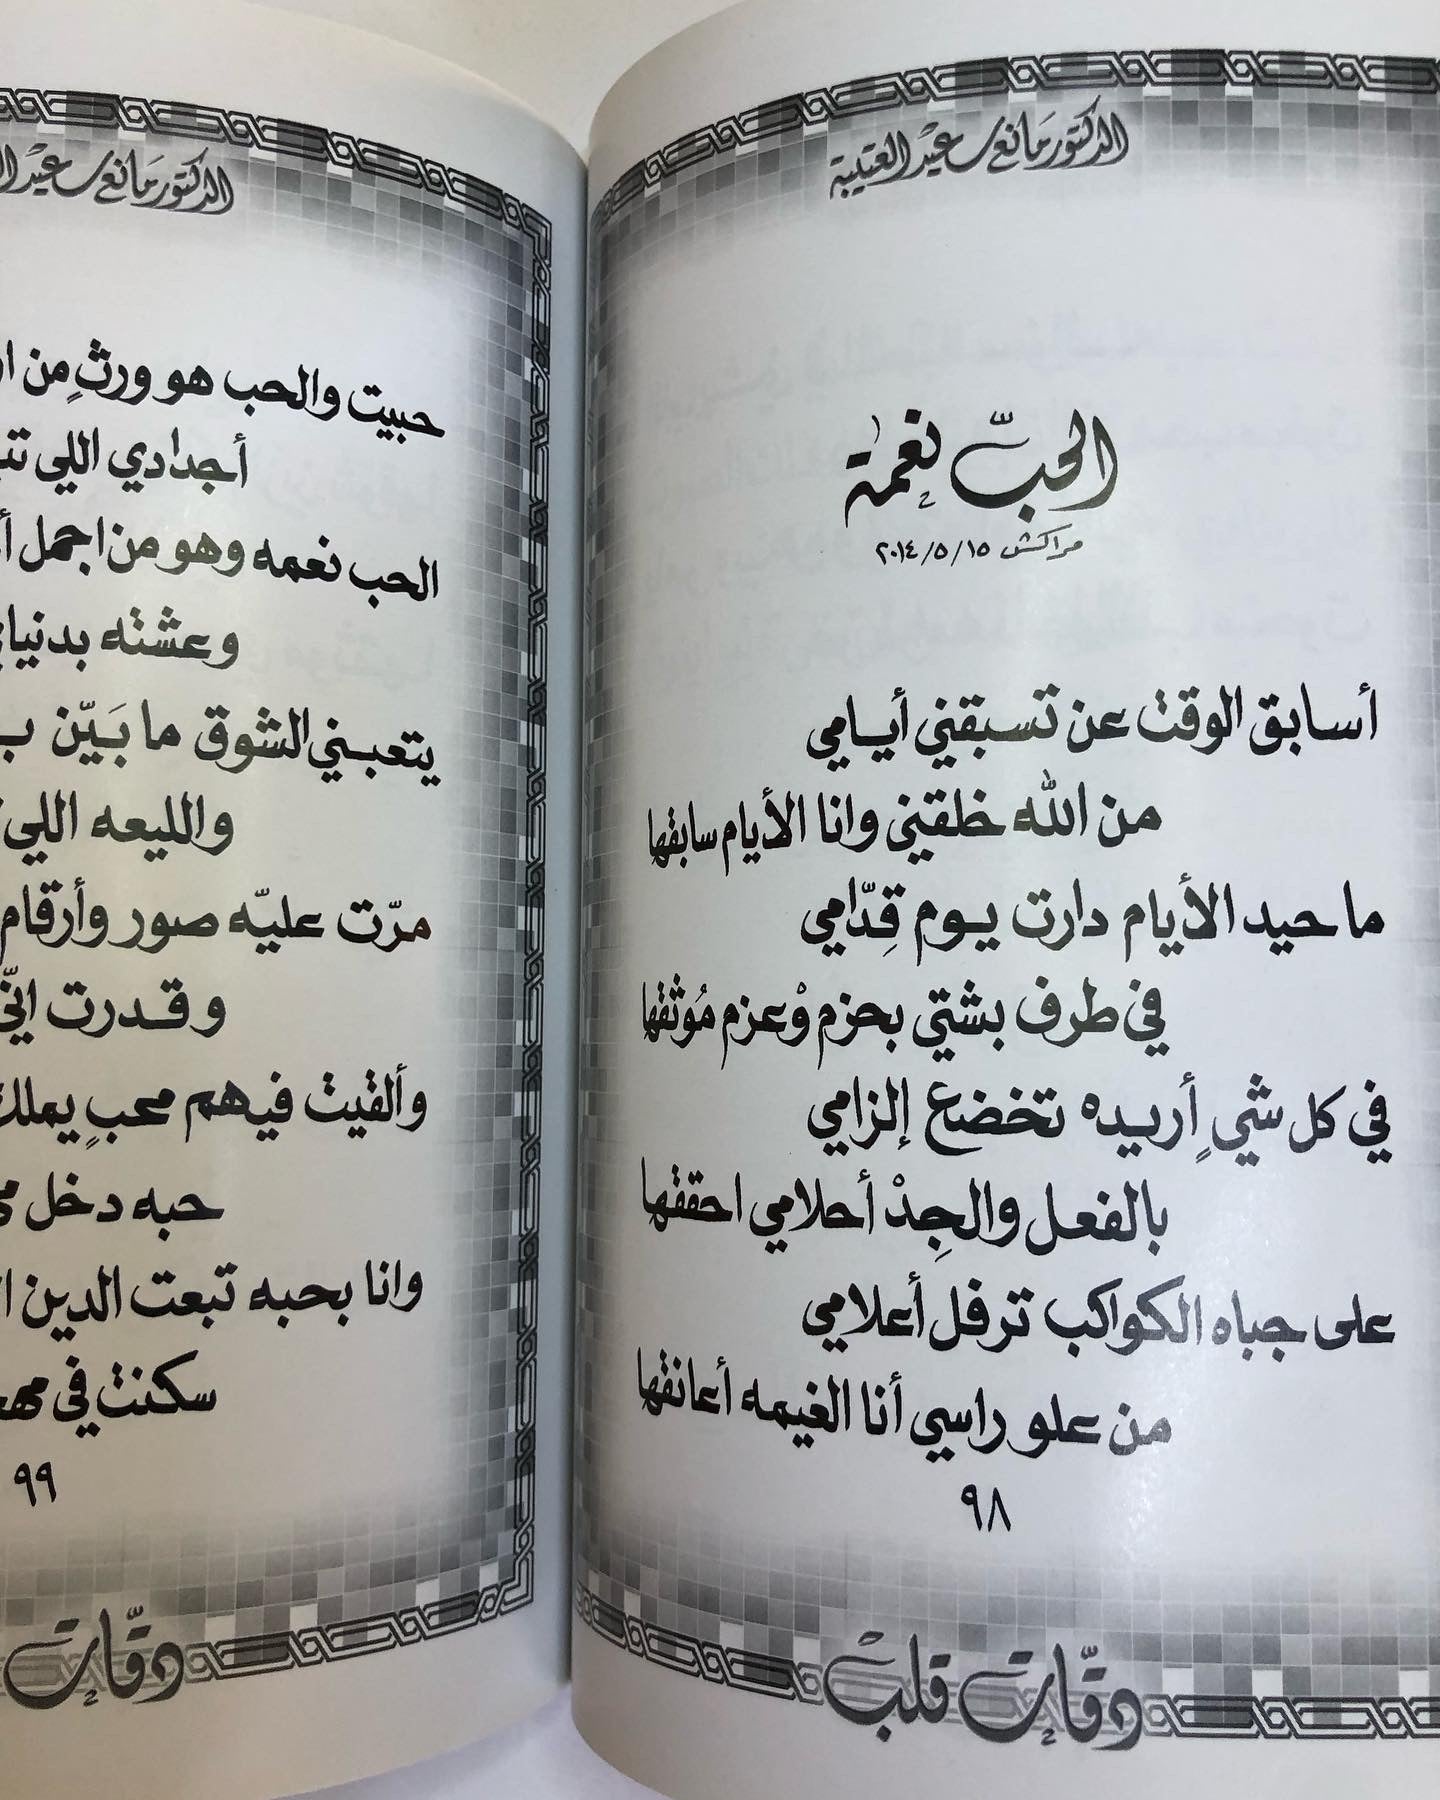 الدكتور مانع سعيد العتيبة
الحبّ نعمة
مراكش ٢٠١٤/٥/١٥
أسابق الوقت عن تسبقني أيامي
من الله خلقني وانا الأيام سابقها
ما حيد الأيام دارت يوم قِدّامي
في طرف بشتي بحزم وْعزم مُوثقها
في كل شيٍ أريده تخضع إلزامي
بالفعل والجِدْ أحلامي احققها
على جباه الكواكب ترفل أعلامي
من علو راسي أنا الغيمه أعانقها
٩٨
دقّات قلب
الدكتور مانع سعيد
حبيت والحب هو ورثٍ من
أجدادي اللي
الحب نعمه وهو من اجمل
وعشته
يتعبني الشوق ما بَيّن
والليعه اللي
مرّت عليّه صور وأرقام
وقدرت انّي
وألقيت فيهم محبٍ
حبه دخل
وانا بحبه تبعت الدين
سكنت في
٩٩
دقّات